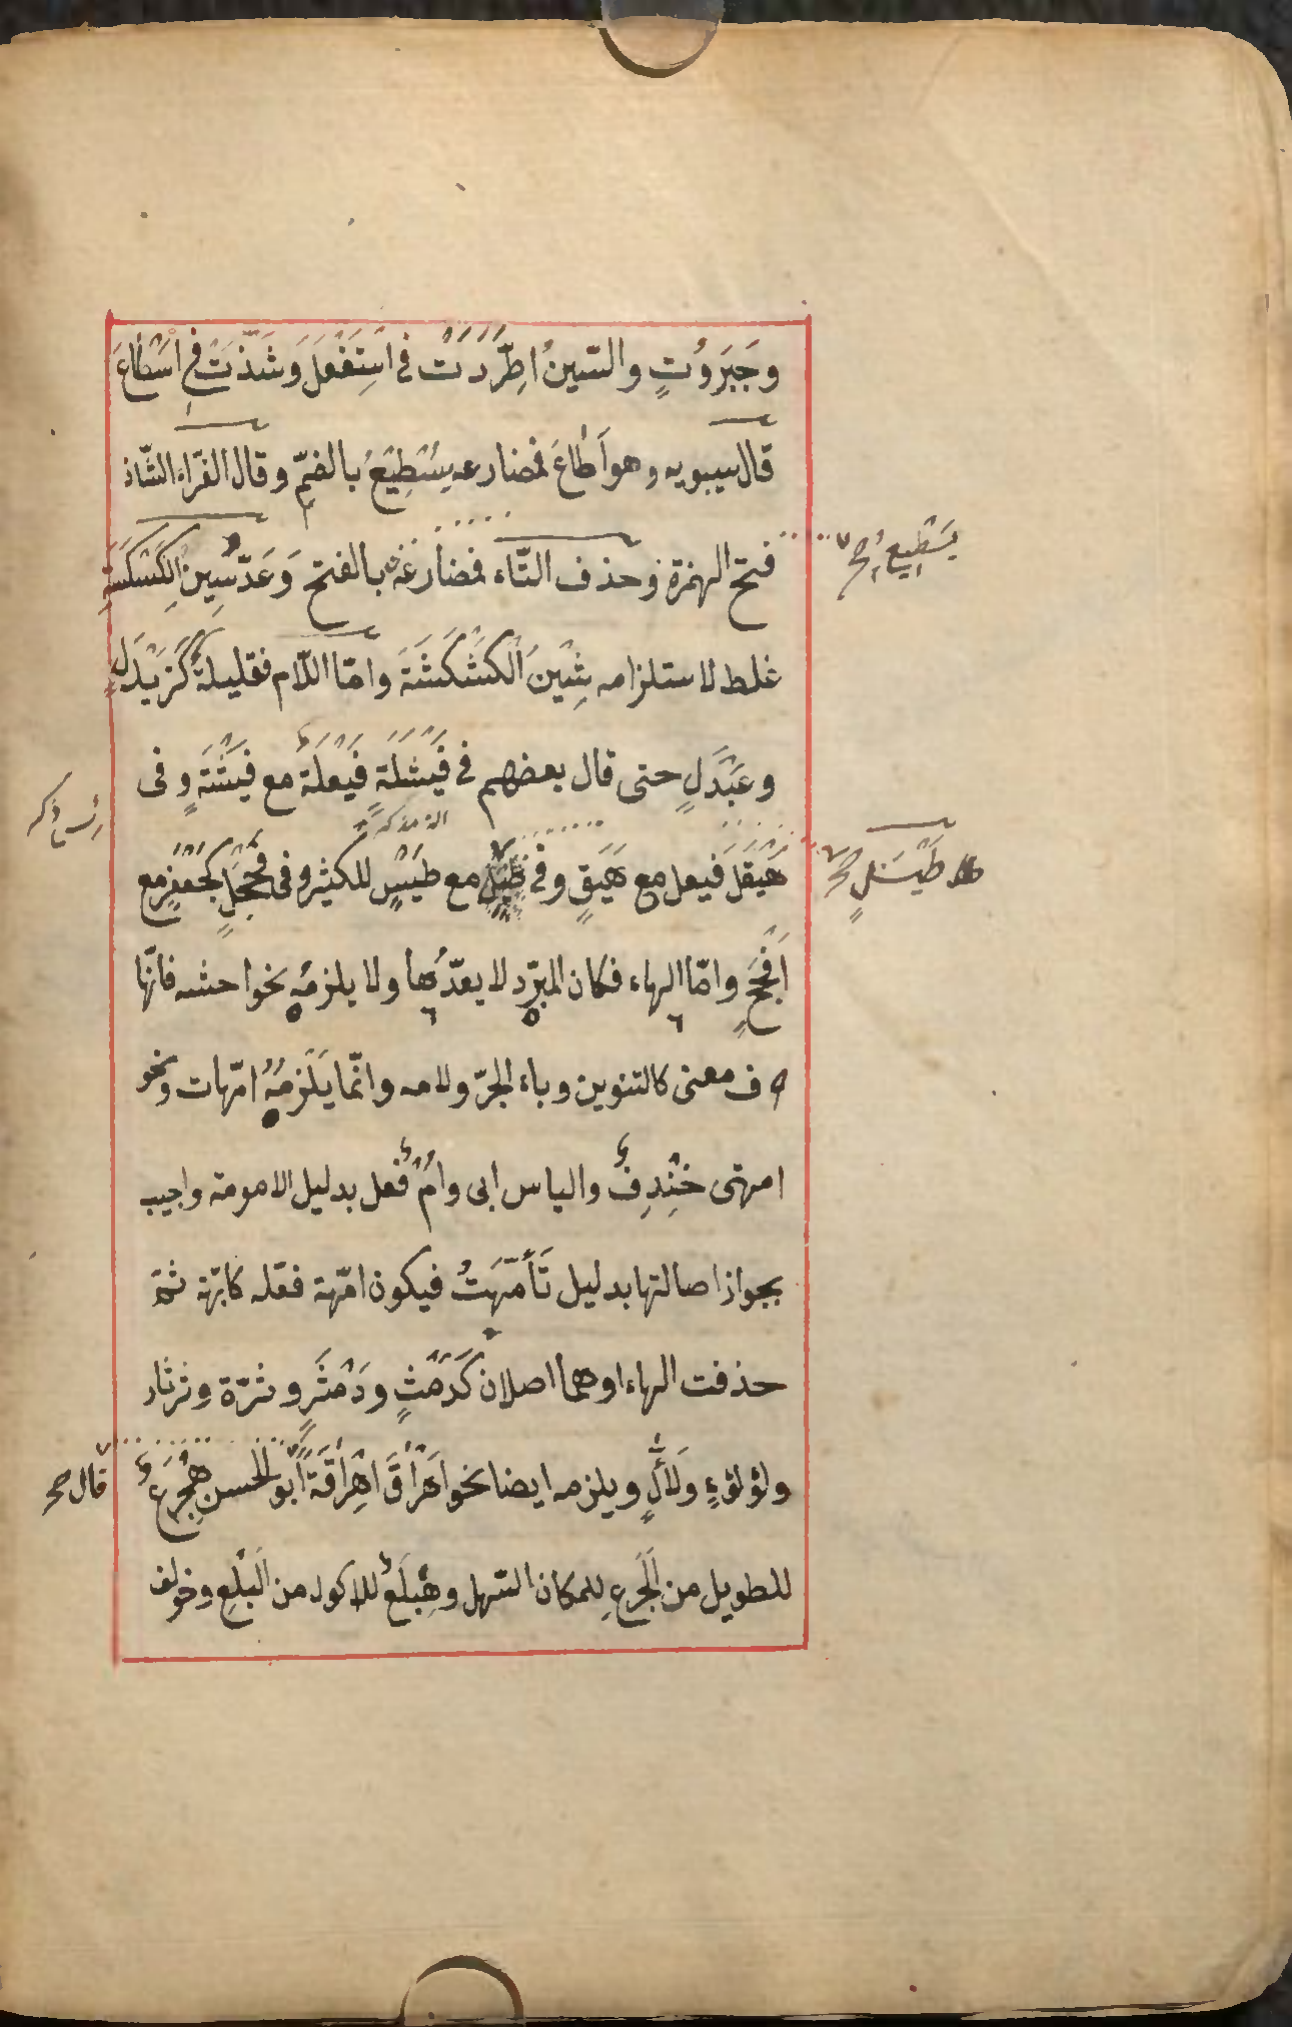 وجَبَرُوتٍ والسّينُ اطِّرَدَتْ فى اسْتَفْعَلَ وَشَذَّتْ فى اَسْطَاعَ
قال سيبويه وهو اَطَاعَ فمضارعه يُسْطِيعُ بالضّمّ وقال الفرّاء الشّاذ
فتح الهمزة وحذف التّاء فمضارعُه بالفتح وَعَدُّ سِينِ الكَسْكَسَةِ
غلط لاستلزامه شِينَ الْكَشْكَشَةِ وامّا اللّام فقليلةٌ كَزَيْدَلٍ
وعَبْدَلٍ حتى قال بعضهم فى فَيْشَلَةٍ فَيْعَلَةٌ مع فَيْشَةٍ وفى
هَيْقَلٍ فَيعل مع هَيْقٍ وفى مع طَيْسٍ للكثير وفى فَحْجَلٍ كجَعْفَرٍ مع
اَفْحَجَ وامّا الهاء فكان المبرّد لا يعدّها ولا يلزمه نحو اخشه فانّها
حرف معنى كالتنوين وباء الجرّ ولامه وانّما يَلْزَمُهُ امّهات ونحو
امهتى خِنْدِفُ والياس ابى وامٌّ فُعل بدليل الامومة واجيب
بجواز اصالتها بدليل تَأَمَّهَتْ فيكون امّهة فعّلة كابّهة ثمّ
حذفت الهاء او هما اصلان كَدَمَثٍ ودَمْثَرٍ وثرّة وثرثار
ولؤلؤءٍ ولَأّلٍ ويلزمه ايضا نحو اَهْرَاقَ اِهْرَاقَةً اَبُو الحسن هِجْرَعٌ
للطويل من الجَرَعِ للمكان السّهل وهِبْلَعٌ للاكول من البَلْعِ وخولف
يَسْطِيع صح
طَيْسَلٍ صح
قال صح